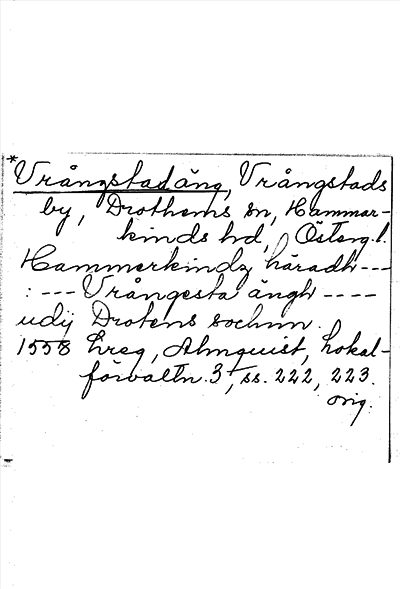 *Vrångstadäng, Vrångstads
by, Drothems sn, Hammar-
kinds hd, Östergl.
Hammerkindz häradh ---
: --- Vrångesta ängh ----
udij Drotens sochnn.
1558 Lreg, Almquist, Lokal-
förvaltn. 3, ss. 222, 223.
orig.